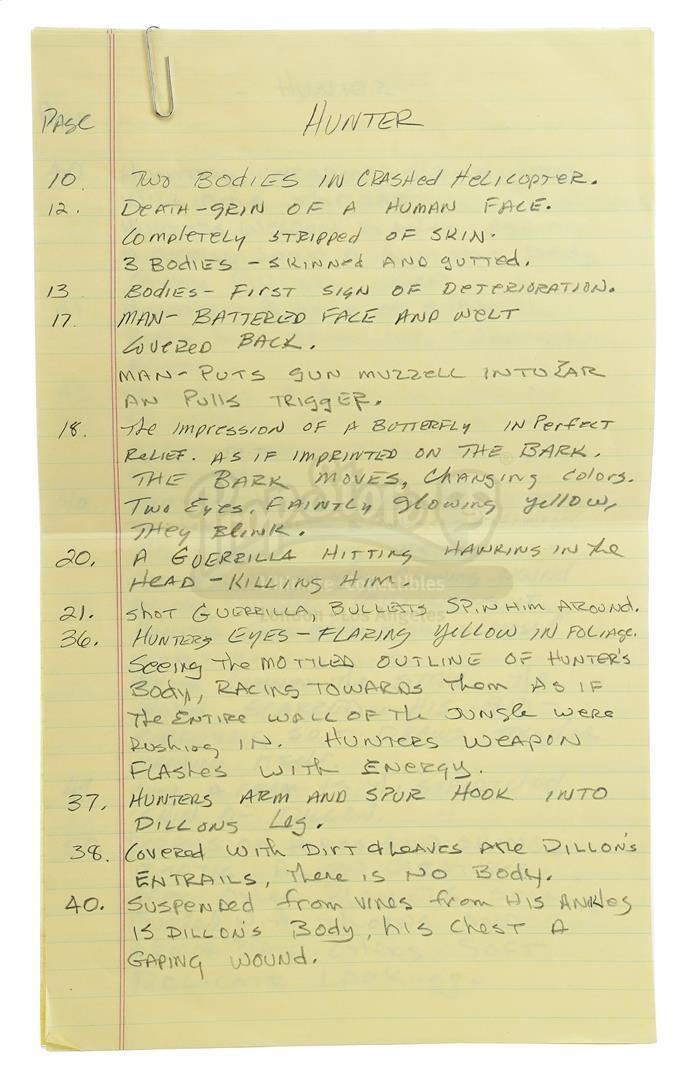 PAGE HUNTER
10. TWO BODIES IN CRASHED HELICOPTER.
12. DEATH-GRIN OF A HUMAN FACE.
COMPLETELY STRIPPED OF SKIN.
3 BODIES - SKINNED AND GUTTED.
13 BODIES - FIRST SIGN OF DETERIORATION.
17. MAN - BATTERED FACE AND WELT
COVERED BACK.
MAN - PUTS GUN MUZZELL INTO EAR
AN PULLS TRIGGER.
18. THE IMPRESSION OF A BUTTERFLY IN PERFECT
RELIEF. AS IF IMPRINTED ON THE BARK.
THE BARK MOVES, CHANGING COLORS.
TWO EYES, FAINTLY GLOWING YELLOW,
THEY BLINK.
20. A GUERRILLA HITTING HAWKINS IN THE
HEAD - KILLING HIM
21. SHOT GUERRILLA, BULLETS SPIN HIM AROUND.
London • Los Angeles
36. HUNTERS EYES - FLARING YELLOW IN FOLIAGE.
SEEING THE MOTTLED OUTLINE OF HUNTER'S
BODY, RACING TOWARDS THEM AS IF
THE ENTIRE WALL OF THE JUNGLE WERE
RUSHING IN. HUNTERS WEAPON
FLASHES WITH ENERGY.
37. HUNTERS ARM AND SPUR HOOK INTO
DILLONS LEG.
38. COVERED WITH DIRT & LEAVES ARE DILLON'S
ENTRAILS, THERE IS NO BODY.
40. SUSPENDED FROM VINES FROM HIS ANKLES
IS DILLON'S BODY, HIS CHEST A
GAPING WOUND.